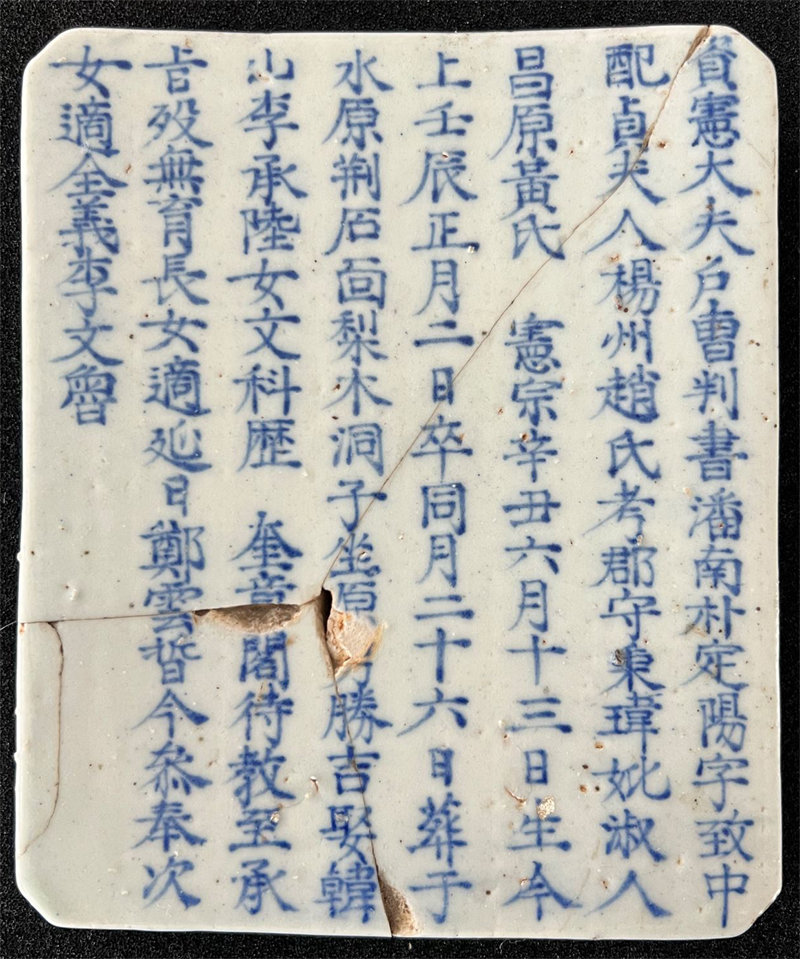 資憲大夫戶曺判書潘南朴定陽字致中
配貞夫人楊州趙氏考郡守秉瑋妣淑人
昌原黃氏 憲宗辛丑六月十三日生今
上壬辰正月二日卒同月二十六日葬于
水原荊石面梨木洞子坐原勝吉娶韓
山李承陸女文科歷 奎章閣待教至承
旨歿無育長女適延日鄭雲晢今叅奉次
女適全義李文魯